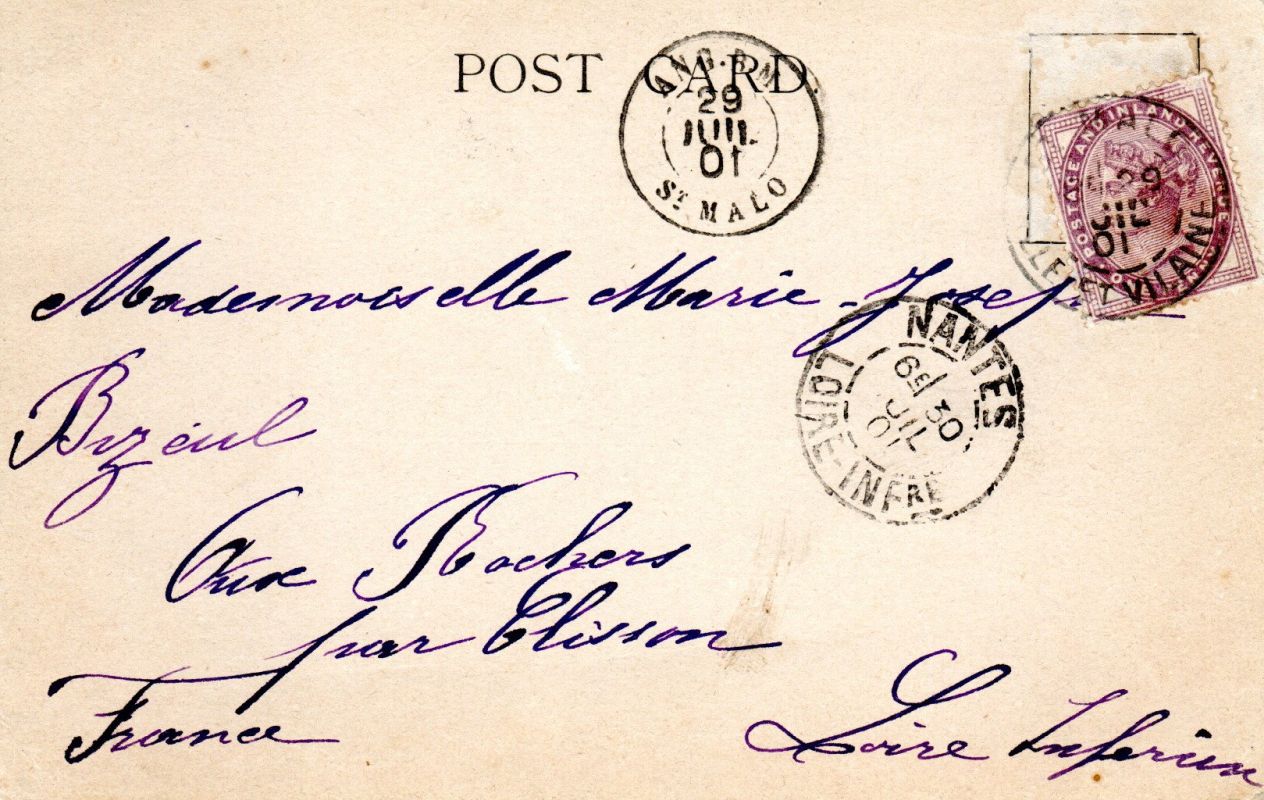 POST CARD.
ANG. B.M
29
JUIL
01
ST MALO
POSTAGE AND INLAND REVENUE
29
JUIL
01
ET VILAINE
Mademoiselle Marie-Joseph
NANTES
6E 30
JUIL
01
LOIRE-INFRE
Bizeul
Aux Rochers
par Clisson
France
Loire Inferieure